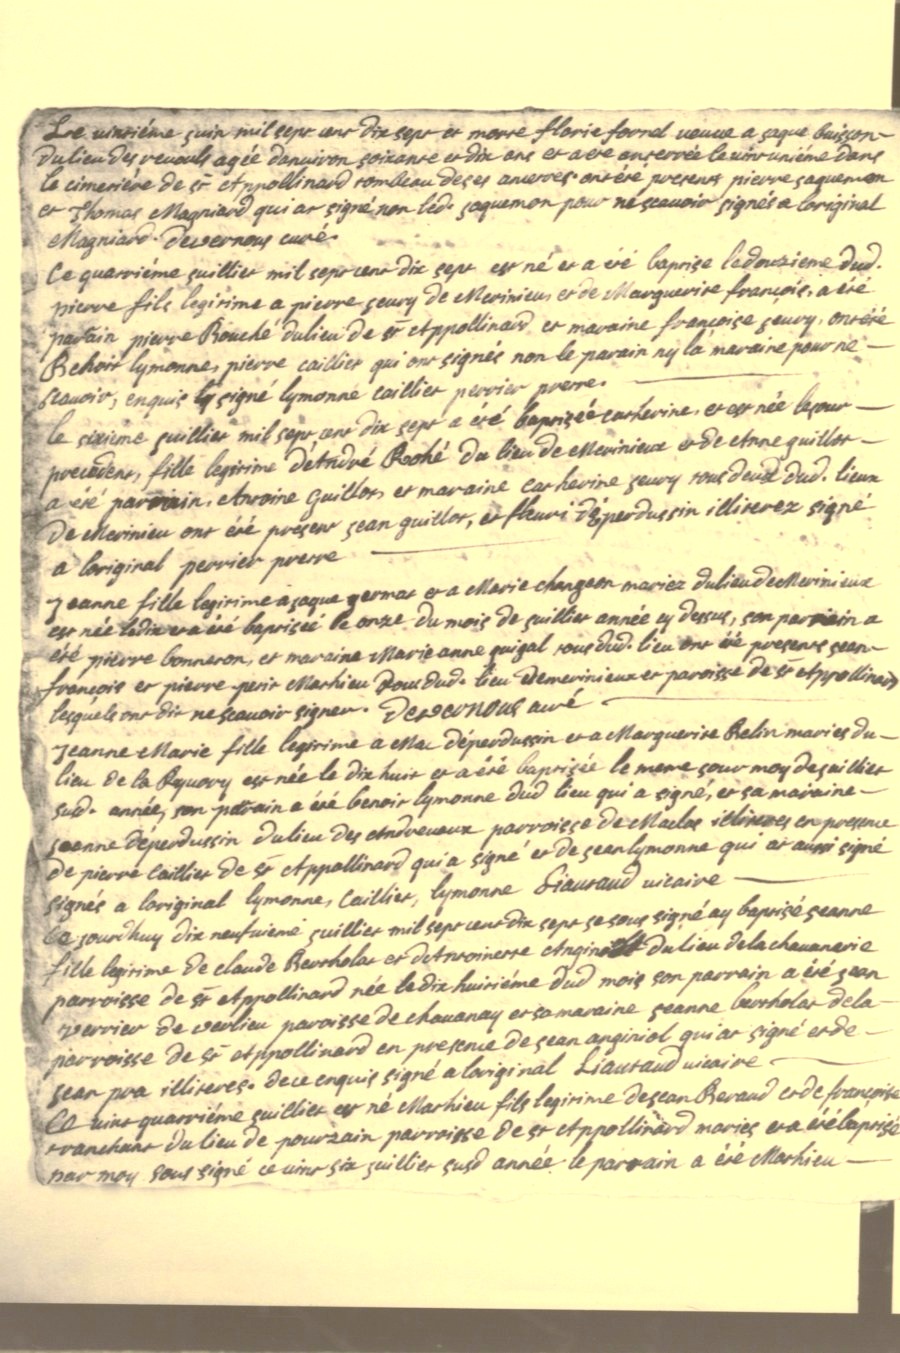 Le vintiéme juin mil sept cent dix sept et morte florie fornel veuve a jaque buisson
du lieu des revouls agée danviron soixante et dix ans et a ete anterrée le vint uniéme dans
le cimetiére de st Appollinard tombeau de ses ancetres ont été presents pierre jaquemon
et Thomas Magniard qui at signé non led. jaquemon pour ne scavoir signés a loriginal
Magniard. Devernous curé.
Ce quattriéme juillier mil sept cent dix sept est né et a été baptise le douzieme dud.
pierre fils legitime a pierre jeury de Merinieu, et de Marguerite françois, a été
parrain pierre Rouché du lieu de st Appollinard et maraine françoise jeury, ont été
Behoit lymonne, pierre caillier qui ont signés non le parain ny la maraine pour ne
scavoir, enquis signé lymonne caillier perrier pretre.
le sixieme juillier mil sept cent dix sept a été baptizéé catherine, et est née le jour
precedent, fille legitime d'André Rohé du lieu de Merinieux et de Anne guillot
a été parrain, Antoine guillot, et maraine catherine jeury tous deux dud. lieux
de Merinieu ont été present jean guillot, et fleuri déperdussin illiterez signé
a loriginal perrier pretre
Jeanne fille legitime a jaque germat et a Marie changeon mariez du lieu de Merinieux
est née le dix et a été baptiseé le onze du mois de juillier année cy dessus, son parrain a
été pierre bonneton, et maraine Marie anne guigal tous dud. lieu ont été presents jean
françois et pierre petit Mathieu tous dud. lieu de merinieux et paroisse de st Appollinard
lesquels ont dit ne scavoir signer. Devernous curé
Jeanne Marie fille legitime a Mac déperdussin et a Marguerite Relin maries du
lieu de la Revory est née le dix huit et a été baptisée le meme jour moy de juillier
susd. année, son parain a été benoit lymonne dud lieu qui a signé, et sa maraine
jeanne déperdussin du lieu des Andreveaux parroisse de Maclas illiteres en presence
de pierre Caillier de st Appollinard qui a signé et de jean lymonne qui at aussi signé
signés a loriginal lymonne, Caillier, lymonne Liautaud vicaire
Ce jourdhuy dix neufvieme juillier mil sept cent dix sept je sous signé ay baptisé jeanne
fille legitime de claude Bertholat et dAntoinette du lieu de la chavanerie
parroisse de st Appollinard née le dix huitiéme dud mois son parrain a été jean
verrier de verlieu paroisse de chavanay et sa maraine jeanne bertholat de la
parroisse de st Appollinard en presence de jean anginiol qui at signé et de
jean pra illiteres. de ce enquis signé a loriginal Liautaud vicaire
Ce vint quattriéme juillier est né Mathieu fils legitime de jean Revaud et de françoise
tranchant du lieu de pourzain parroisse de st Appollinard maries et a été baptisé
par moy sous signé ce vint six juillier susd année. le parrain a été Mathieu